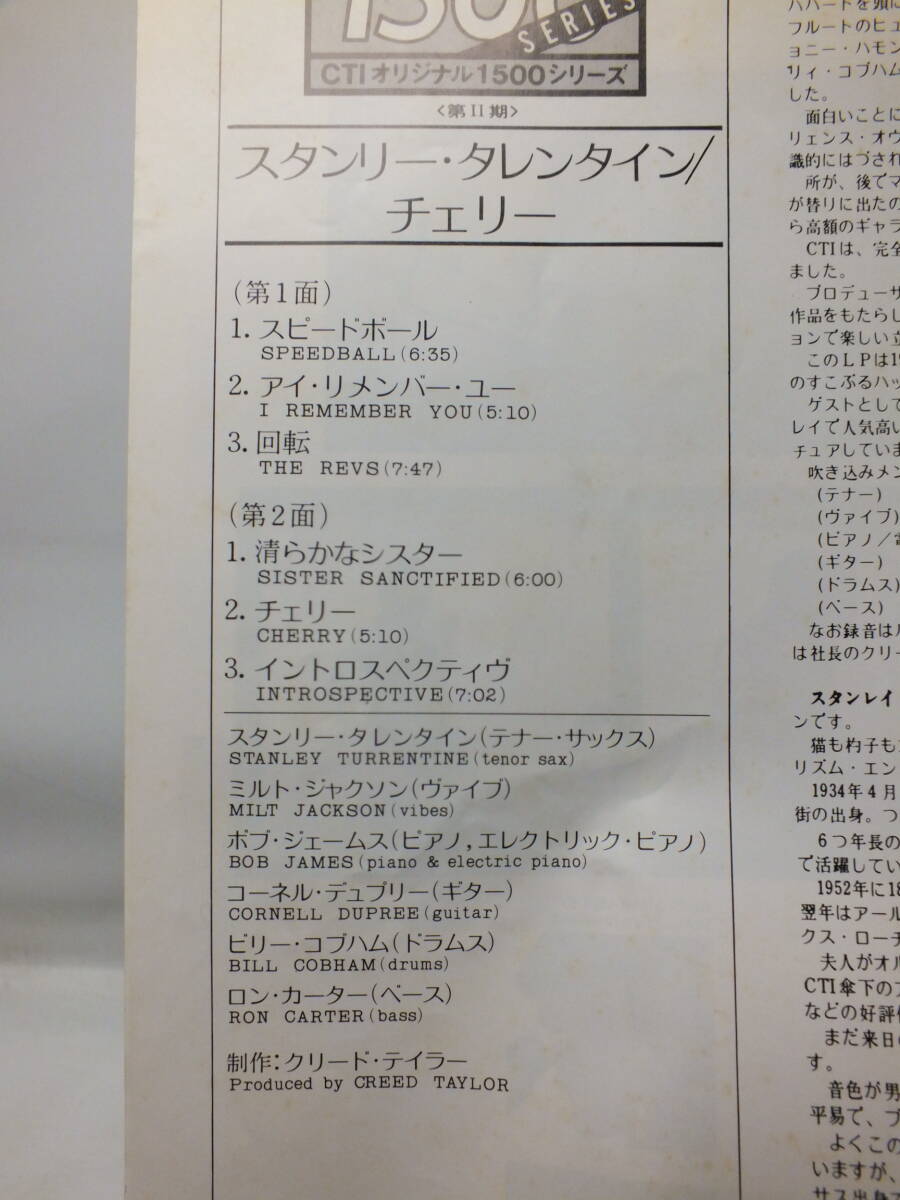 1500
SERIES
CTIオリジナル1500シリーズ
〈第II期〉
スタンリー・タレンタイン/
チェリー
(第1面)
1. スピードボール
SPEEDBALL(6:35)
2. アイ・リメンバー・ユー
I REMEMBER YOU(5:10)
3. 回転
THE REVS(7:47)
(第2面)
1. 清らかなシスター
SISTER SANCTIFIED(6:00)
2. チェリー
CHERRY(5:10)
3. イントロスペクティヴ
INTROSPECTIVE(7:02)
スタンリー・タレンタイン(テナー・サックス)
STANLEY TURRENTINE(tenor sax)
ミルト・ジャクソン(ヴァイブ)
MILT JACKSON(vibes)
ボブ・ジェームス(ピアノ,エレクトリック・ピアノ)
BOB JAMES(piano & electric piano)
コーネル・デュプリー(ギター)
CORNELL DUPREE(guitar)
ビリー・コブハム(ドラムス)
BILL COBHAM(drums)
ロン・カーター(ベース)
RON CARTER(bass)
制作:クリード・テイラー
Produced by CREED TAYLOR
ハバードを頭に
フルートのヒュ
ョニー・ハモン
リィ・コブハム
した。
面白いことに
リェンス・オヴ
識的にはづされ
所が、後でマ
が替りに出たの
ら高額のギャラ
CTIは、完全
ました。
プロデューサ
作品をもたらし
ョンで楽しい立
このLPは19
のすこぶるハッ
ゲストとして
レイで人気高い
チュアしていま
吹き込みメン
(テナー)
(ヴァイブ)
(ピアノ/電
(ギター)
(ドラムス)
(ベース)
なお録音はル
は社長のクリー
スタンレイ
ンです。
猫も杓子も
リズム・エン
1934年4月
街の出身。つ
6つ年長の
で活躍してい
1952年に18
翌年はアール
クス・ローチ
夫人がオル
CTI傘下の
などの好評
まだ来日の
す。
音色が男
平易で、ブ
よくこの
いますが、
サス出身